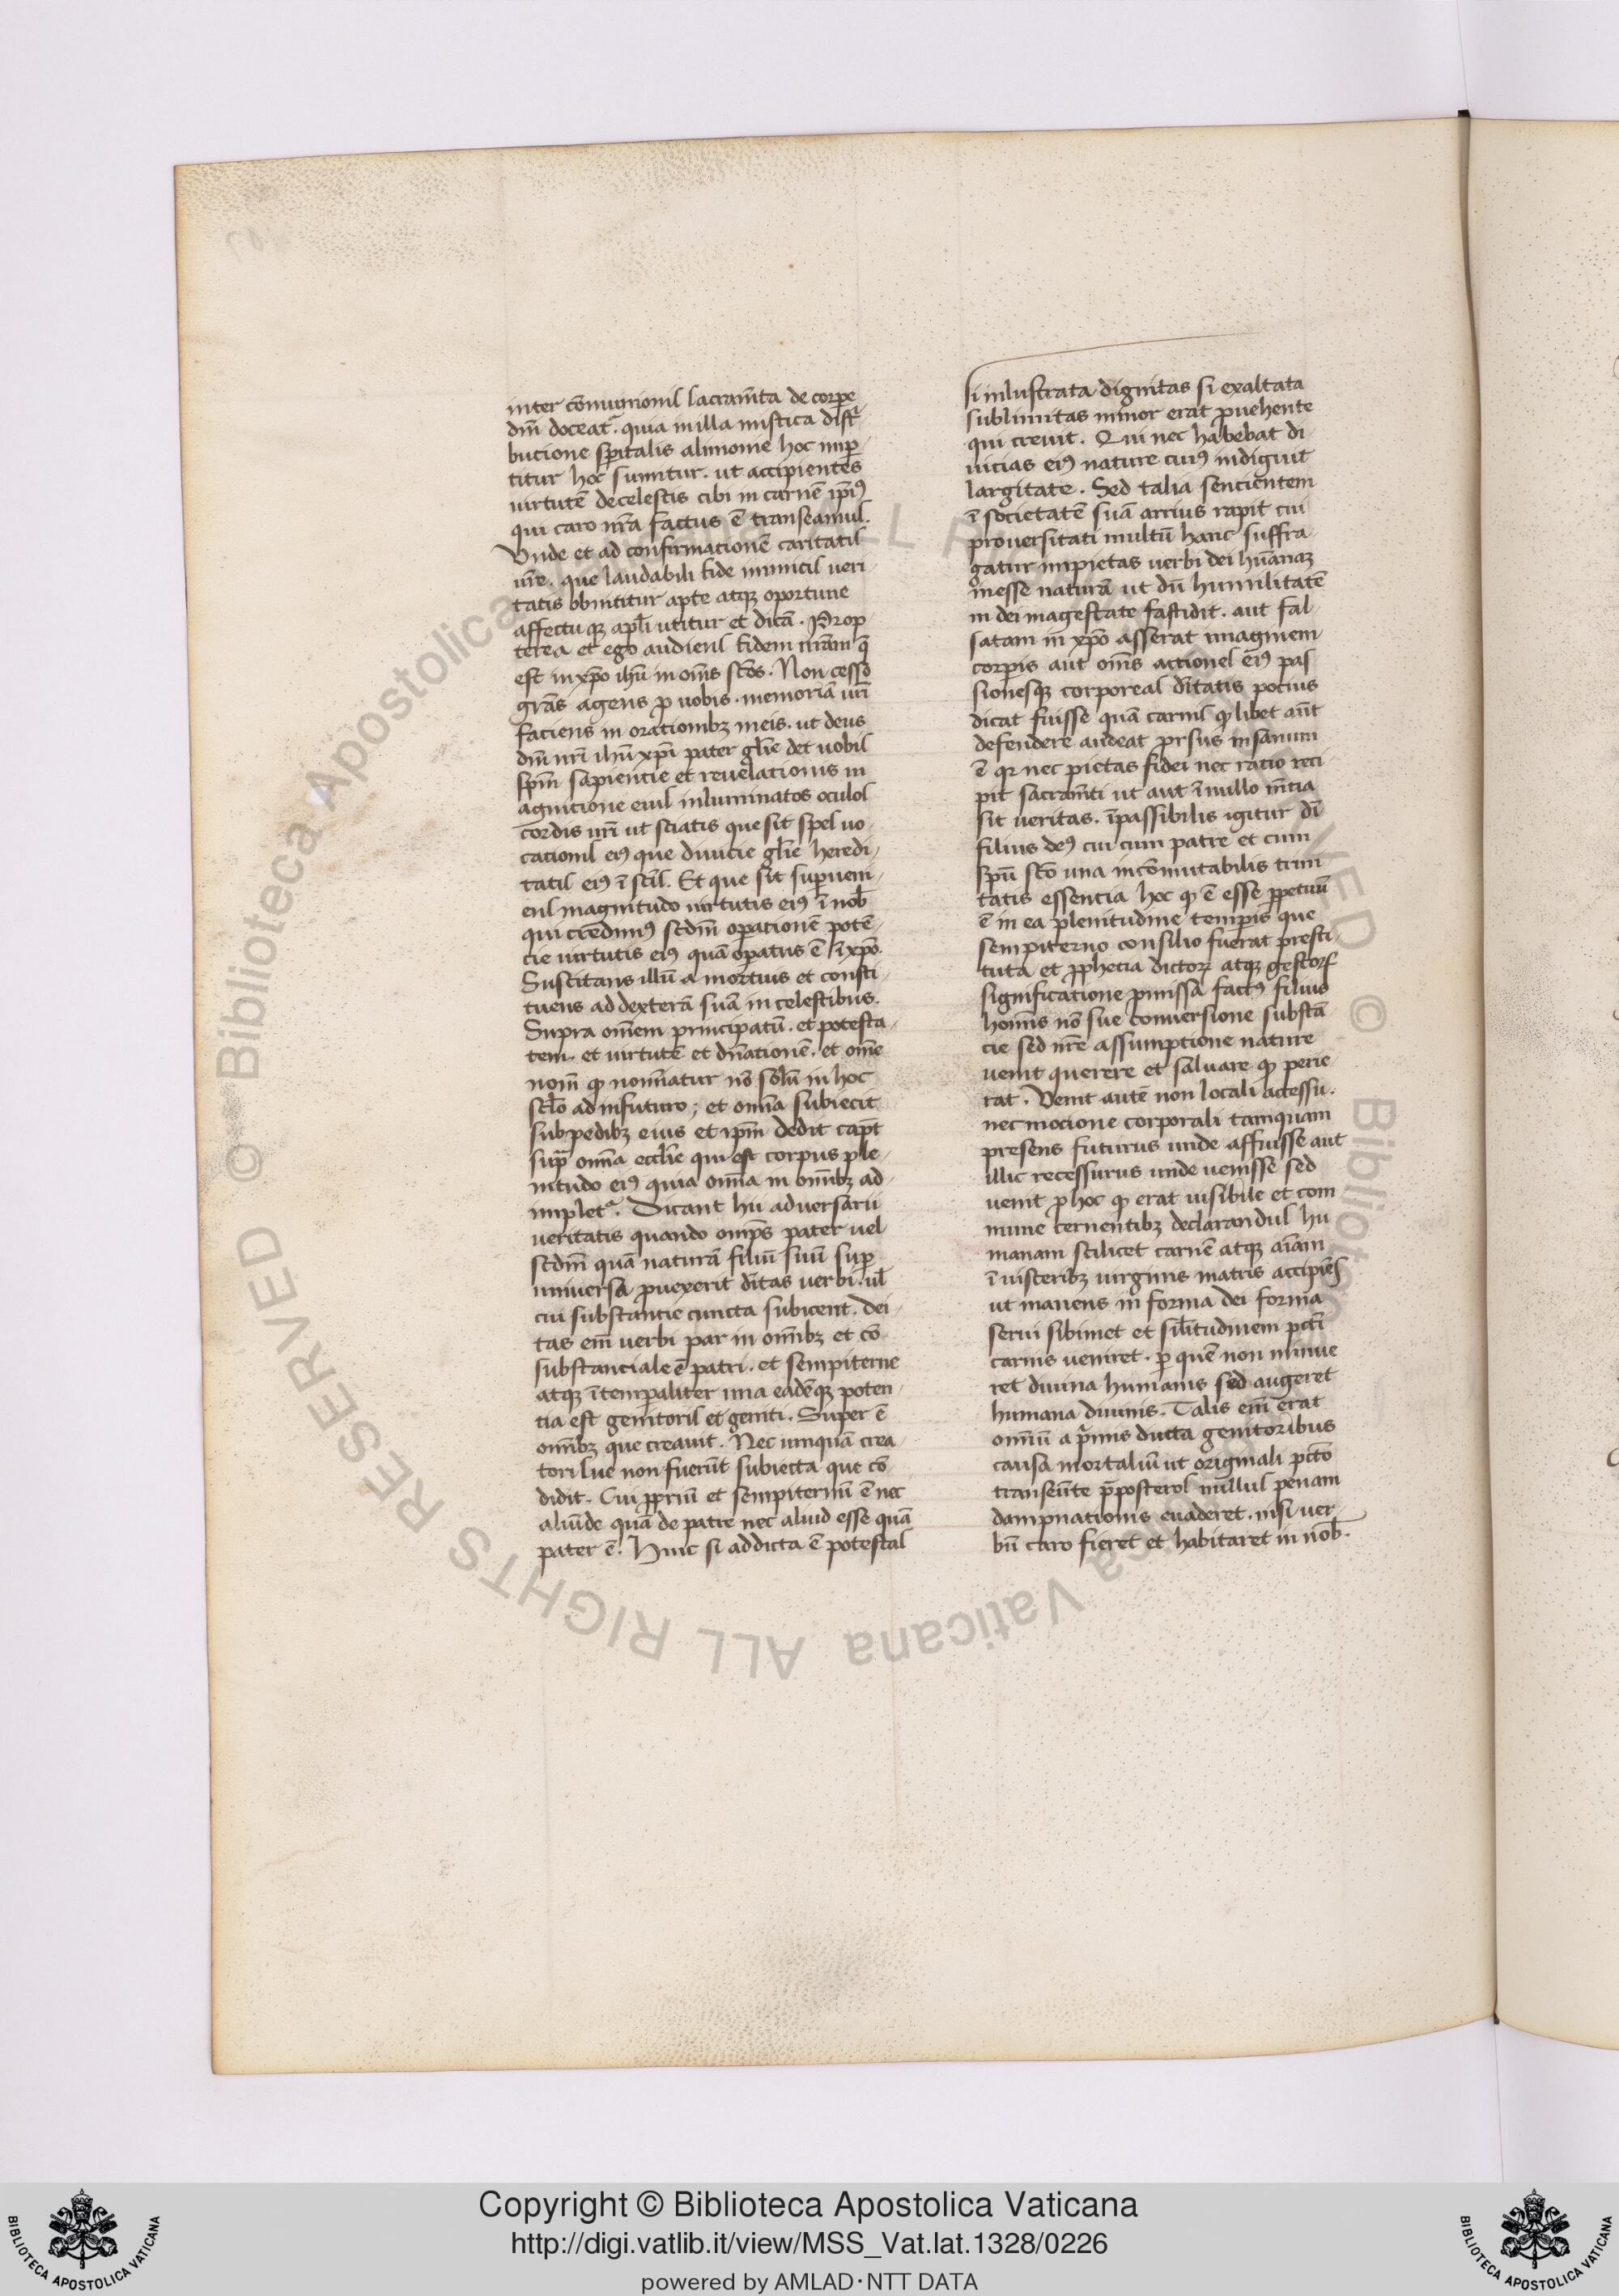 inter cōmunionis sacram̄ta de corpe
dn̄i doceat᷑. quia in illa mistica dist̄ī
bucione sp̄italis alimonie hoc imp̄
titur hoc sumitur. ut accipientes
uirtutē de celestis cibi in carnē ip̄iꝰ
qui caro nr̄a factus ē transeamus.
Vnde et ad confirmationē caritatis
ur̄e. que laudabili fide inimicis ueri
tatis obnititur apte atqꝫ oportune
affectuqꝫ apl̄i utitur et dicā. Prop
terea et ego audiens fidem ur̄am q̄
est in xp̄o ihū in om̄s sc̄os. Non cesso
grās agens ꝓ uobis. memoriā ur̄i
faciens in orationibꝫ meis. ut deus
dn̄i nr̄i ihū xp̄i pater gl̄ie det uobis
sp̄m sapientie et reuelationis in
agnitione eius inluminatos oculos
cordis ur̄i ut sciatis que sit spes uo
cationis eiꝰ que diuicie gl̄ie heredi
tatis eiꝰ ī sc̄is. Et que sit sup̄uem
ens magnitudo uirtutis eiꝰ ī nob̄
qui credimꝰ sc̄dm̄ op̄ationē potē
cie uirtutis eiꝰ quā op̄atus ē ī xp̄o.
Suscitans illū a mortuis et consti
tuens ad dexterā suā in celestibus.
Supra om̄em principatū. et potesta
tem. et uirtutē et dn̄ationē. et om̄e
nom̄ qꝫ nomīatur nō solū in hoc
sc̄l̄o ad in futuro; et om̄ia subiecit
sub pedibꝫ eius et ip̄m dedit cap̄t
sup̄ om̄ia eccl̄ie qui est corpus ple
nitudo eiꝰ quia om̄ia in om̄ibꝫ ad
implet᷑. Dicant hii aduersarii
ueritatis quando om̄ps pater uel
sc̄dm̄ quā naturā filiū suū sup̄
uniuersa ꝓuexerit d̄itas uerbi. ul̄
cui substantie cuncta subicent. dei
tas em̄ uerbi par in om̄ibꝫ et cō
substanciale ē patri. et sempiterne
atqꝫ ītemp̄aliter una eadēqꝫ poten
tia est genitoris et geniti. Super ē
om̄ibꝫ que creauit. Nec umquā crea
tori sue non fuerūt subiecta que cō
didit. Cui ꝓpriū et sempiternū ē nec
aliūde quā de patre nec aliud esse quā
pater ē. Hinc si addicta ē potestas
si inlustrata dignitas si exaltata
sublimitas minor erat ꝓuehente
qui creuit. Qui nec habebat di
uicias eiꝰ nature cuiꝰ indiguit
largitate. Sed talia sencientem
ī societatē suā arrius rapit cui
ꝓuersitati multū hanc suffra
gatur impietas uerbi dei hūanaꝫ
inesse naturā ut dū humilitatē
in dei magestate fastidit. aut fal
satam in xp̄o asserat imaginem
corp̄is aut om̄s actiones eiꝰ pas
sionesqꝫ corporeas d̄itatis potius
dicat fuisse quā carnis qꝫ libet aūt
defendere audeat ꝓrsus insanum
ē qꝛ nec pietas fidei nec racio reci
pit sacram̄ti ut aut ī nullo m̄tia
sit ueritas. īpassibilis igitur dī
filius deꝰ cui cum patre et cum
sp̄u sc̄o una incōmutabilis trini
tatis essencia hoc qꝫ ē esse ꝑpetuū
ē in ea plenitudine temp̄is que
sempiterno consilio fuerat presti
tuta et ꝓphecia dictorꝝ atqꝫ gestorꝝ
significatione ꝓmissa factꝰ filius
homīs nō sue conuersione substā
cie sed nr̄e assumptione nature
uenit querere et saluare qꝫ perie
rat. Venit autē non locali accessu.
nec mocione corporali tamquam
presens futurus unde affuisse aut
illic recessurus unde uenisse sed
uenit ꝑ hoc qꝫ erat uisibile et com
mune cernentibꝫ declarandus hu
manam scilicet carnē atqꝫ aīam
ī uisceribꝫ uirginis matris accipiēs
ut manens in forma dei forma
serui sibimet et sil̄itudinem pct̄i
carnis ueniret. ꝑ quē non minue
ret diuina humanis sed augeret
humana diuinis. Talis em̄ erat
om̄iū a p̄mis ducta genitoribus
causa mortaliū ut originali pct̄o
transeūte p̄posteros nullus penam
dampnationis euaderet. nisi uer
bū caro fieret et habitaret in nob̄.
© Biblioteca Apostolica Vaticana ALL RIGHTS RESERVED
Copyright © Biblioteca Apostolica Vaticana
http://digi.vatlib.it/view/MSS_Vat.lat.1328/0226
powered by AMLAD·NTT DATA
BIBLIOTECA APOSTOLICA VATICANA
BIBLIOTECA APOSTOLICA VATICANA